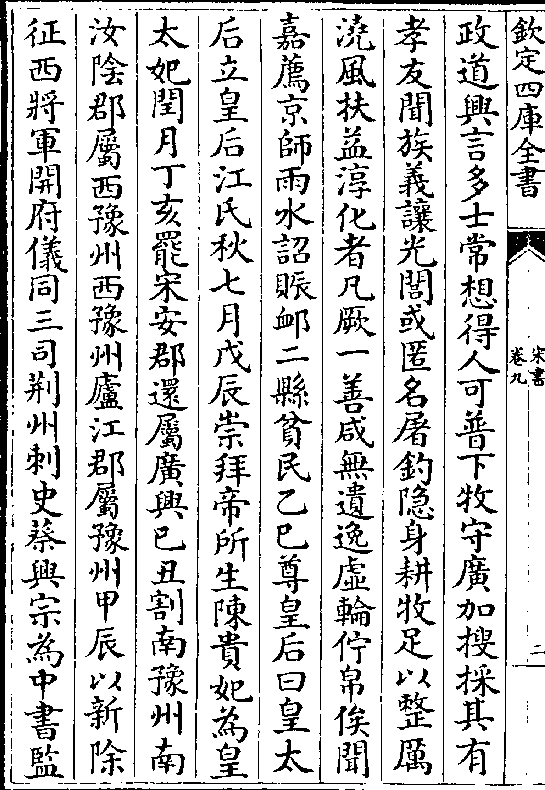 欽定四庫全書
宋書
卷九
二
政道興言多士常想得人可普下牧守廣加搜採其有
孝友聞族義讓光閭或匿名屠釣隐身耕牧足以整厲
澆風扶益淳化者凡厥一善咸無遺逸虛輪佇帛俟聞
嘉薦京師雨水詔賑䘏二縣貧民乙巳尊皇后曰皇太
后立皇后江氏秋七月戊辰崇拜帝所生陳貴妃為皇
太妃閏月丁亥罷宋安郡還屬廣興已丑割南豫州南
汝陰郡屬西豫州西豫州廬江郡屬豫州甲辰以新除
征西將軍開府儀同三司荆州刺史蔡興宗為中書監